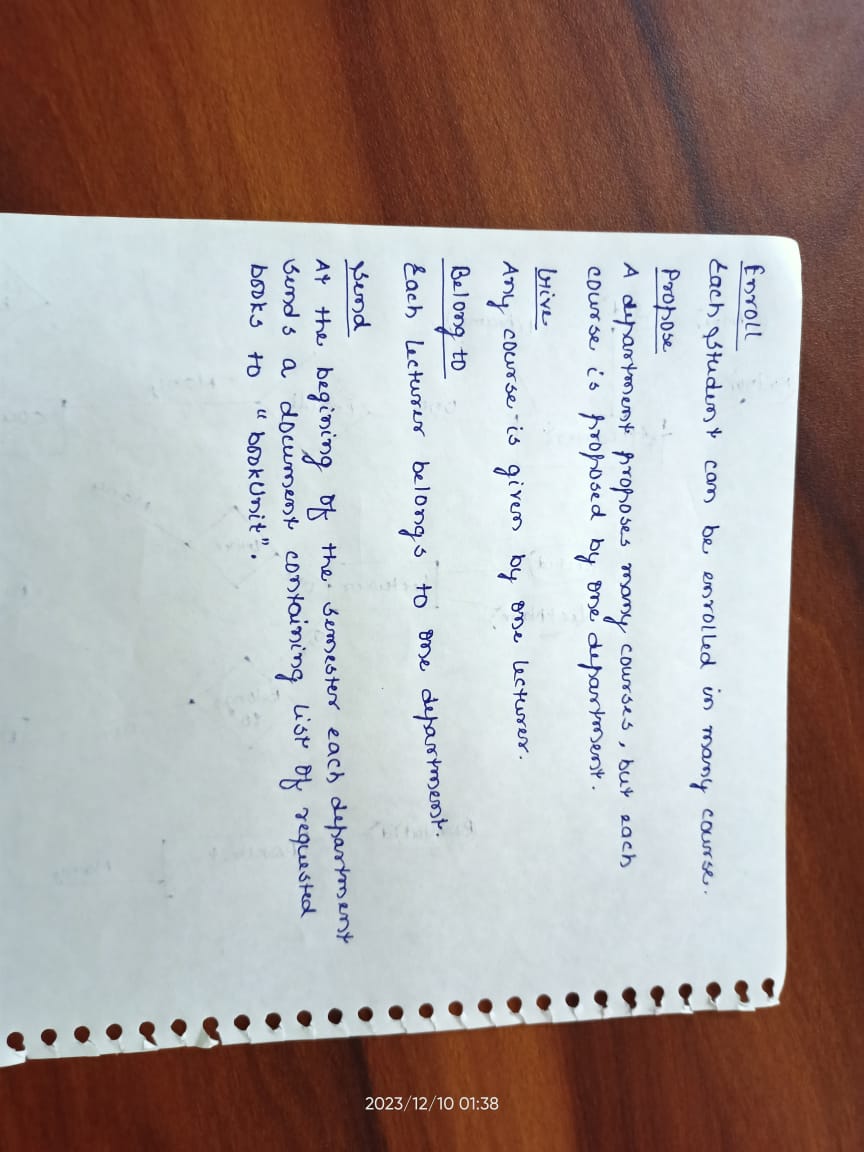 Enroll
Each student can be enrolled in many course.
Propose
A department proposes many courses, but each
course is proposed by one department.
Give
Any course is given by one lecturer.
Belong to
Each Lecturer belongs to one department.
Send
At the begining of the semester each department
sends a document containing list of requested
books to "bookUnit".
2023/12/10 01:38